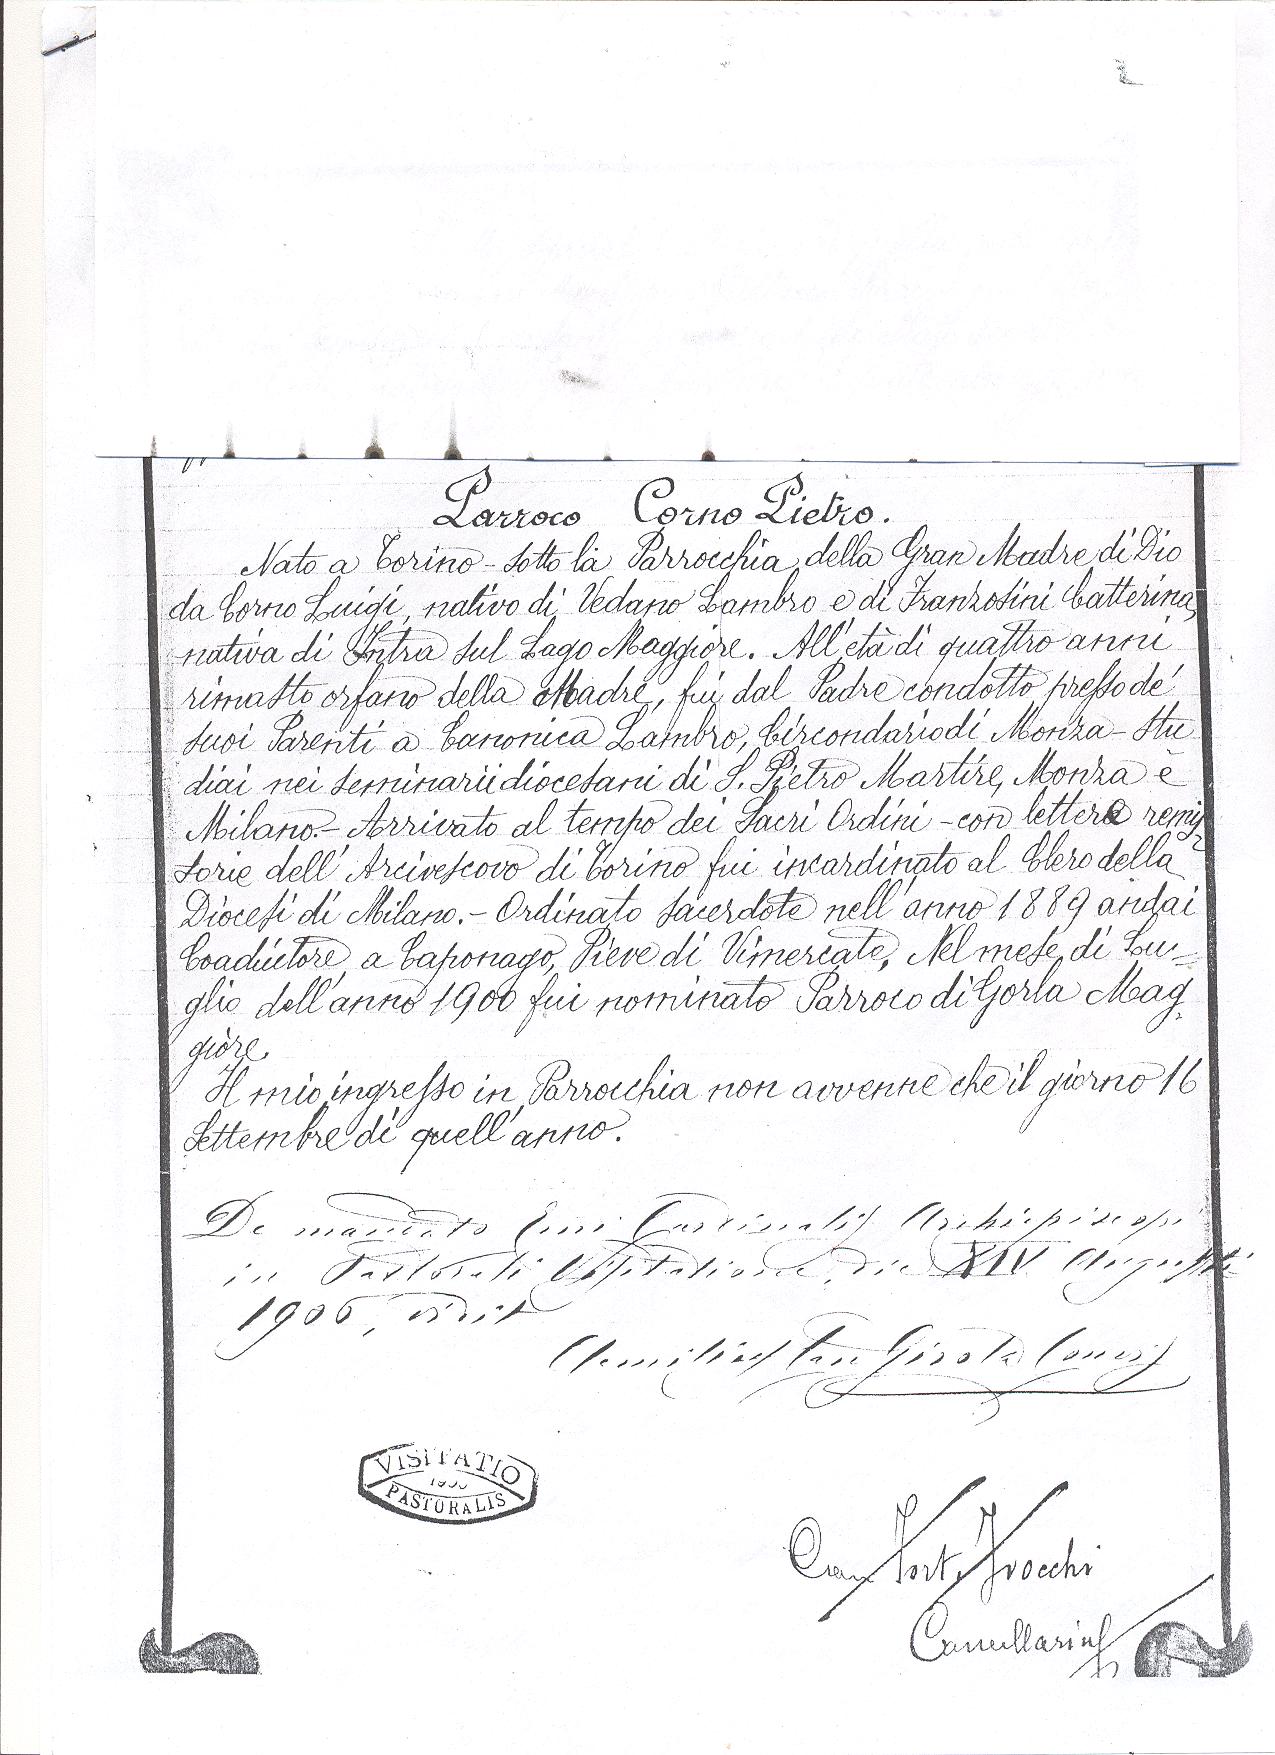 Parroco Corno Pietro.
Nato a Torino - sotto la Parrocchia della Gran Madre di Dio
da Corno Luigi, nativo di Vedano Lambro e di Franzosini Catterina,
nativa di Intra sul Lago Maggiore. All'età di quattro anni
rimasto orfano della Madre, fui dal Padre condotto presso de'
suoi Parenti a Canonica Lambro, Circondario di Monza - Stu
diai nei seminarii diocesani di S. Pietro Martire, Monza è
Milano. - Arrivato al tempo dei Sacri Ordini - con lettere remis
sorie dell'Arcivescovo di Torino fui incardinato al Clero della
Diocesi di Milano. - Ordinato sacerdote nell'anno 1889 andai
Coadiutore a Caponago, Pieve di Vimercate, Nel mese di Lu=
glio dell'anno 1900 fui nominato Parroco di Gorla Mag
giore.
Il mio ingresso in Parrocchia non avvenne che il giorno 16
Settembre di quell'anno.
De mandato Emi Cardinalis Archiepiscopi
in Pastorali Visitatione, die XIV Augusti
1906, vidit
Girola
VISITATIO
PASTORALIS
Can Fort. Trocchi
Cancellarius